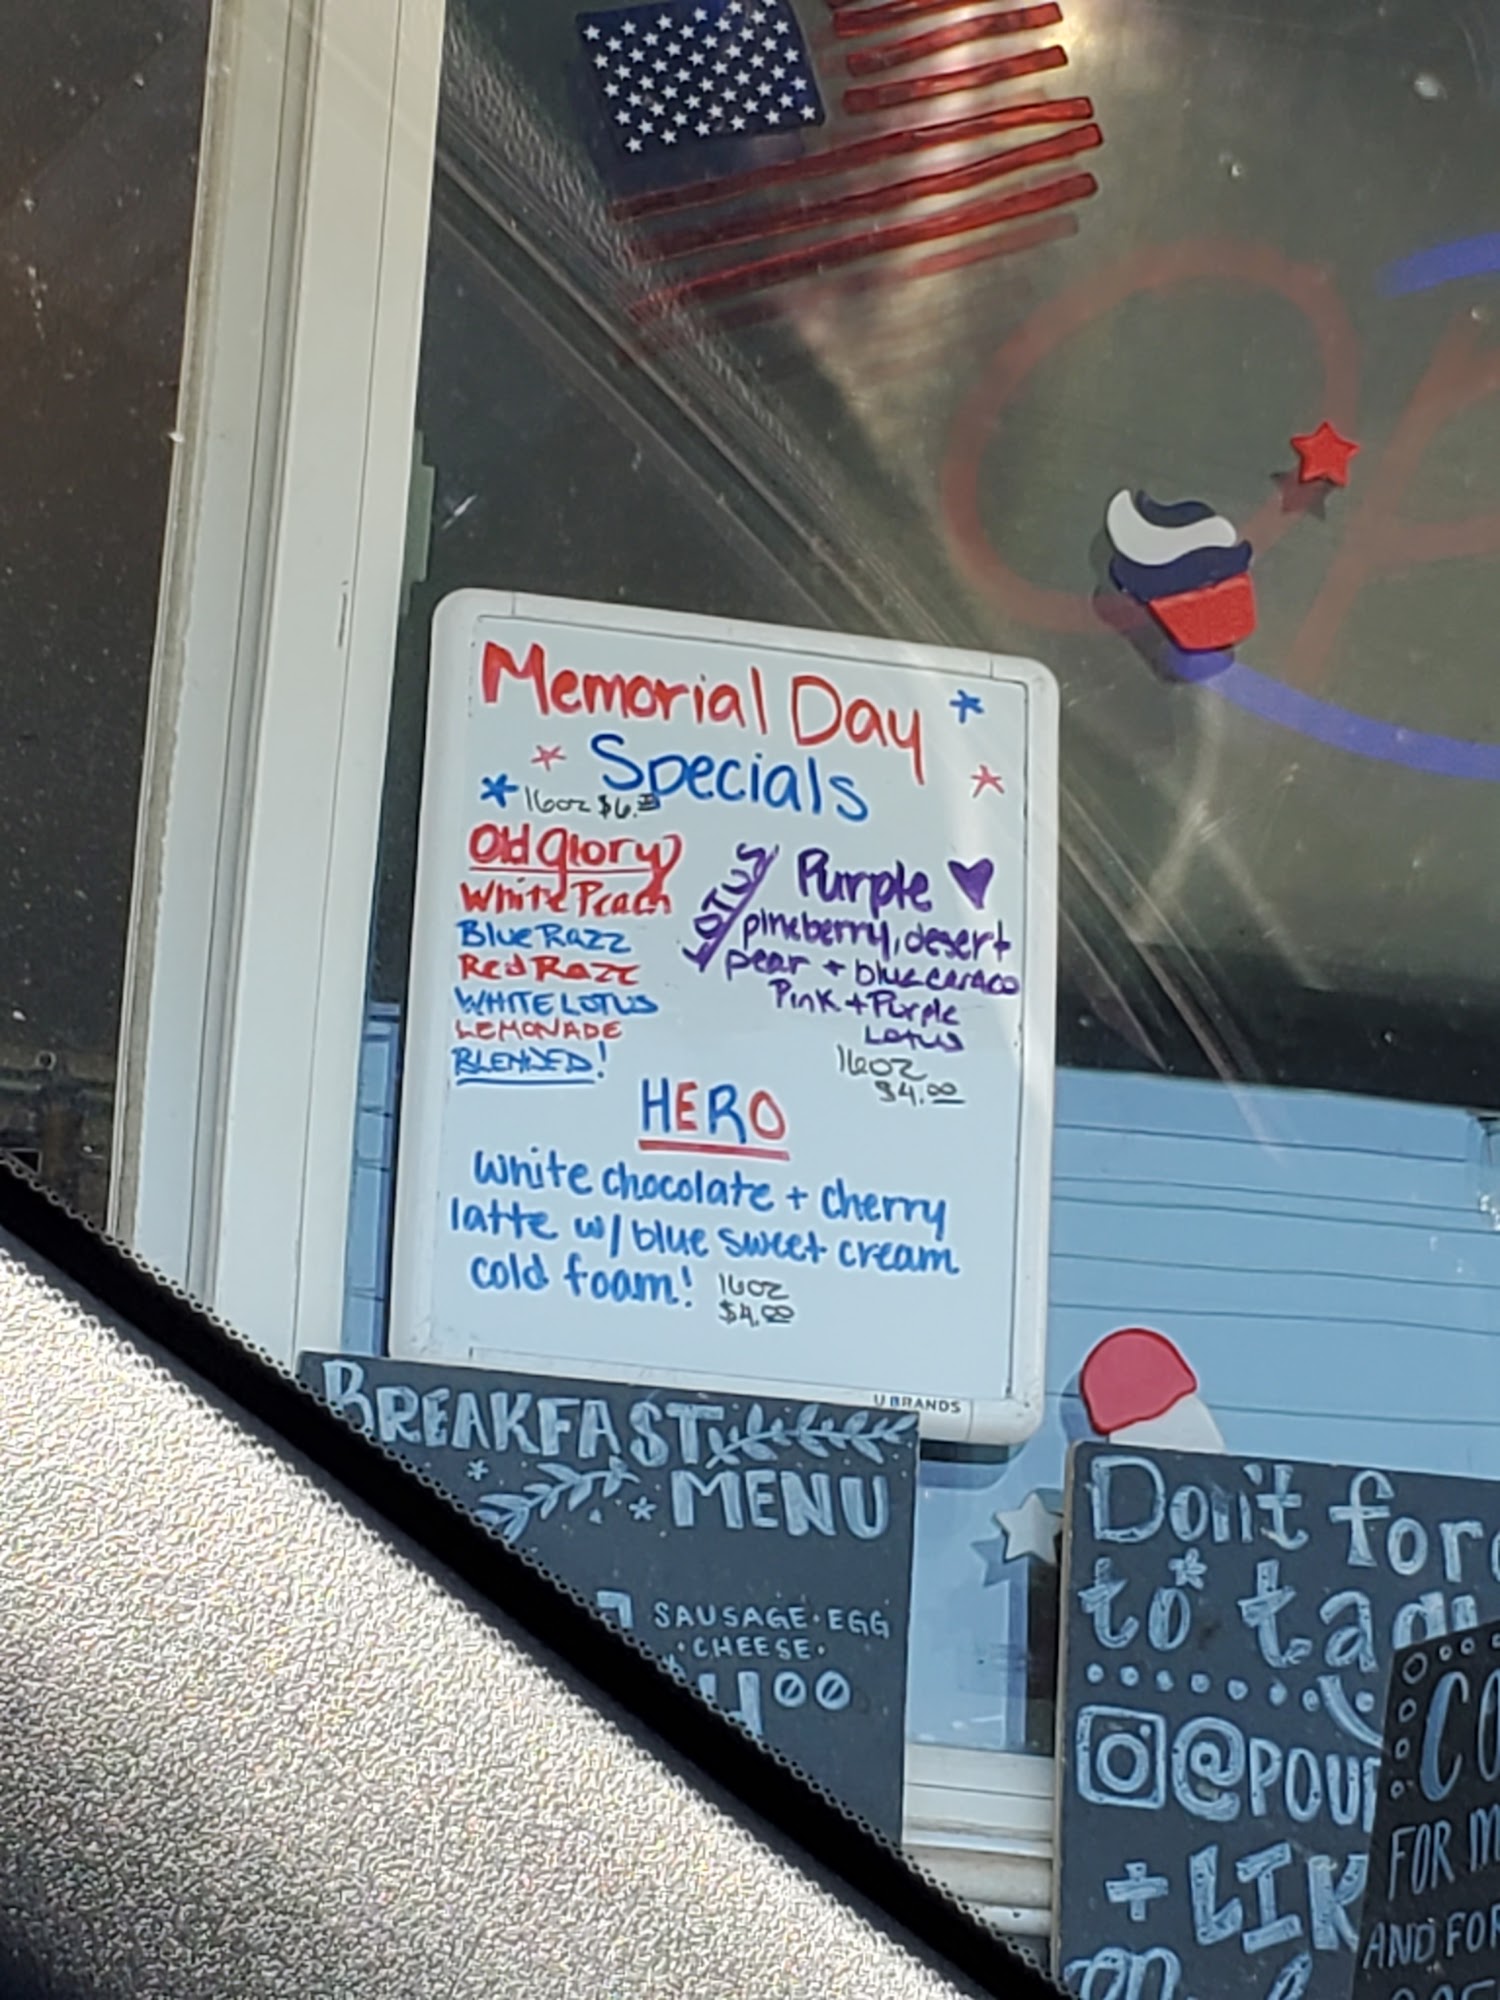 Op
Memorial Day
Specials
16oz $6.00
Old Glory
White Peach
Blue Razz
Red Razz
WHITE LOTUS
LEMONADE
BLENDED!
LOTUS
Purple
pineberry, desert
pear + blue caracao
Pink + Purple
Lotus
16oz
$4.00
HERO
white chocolate + cherry
latte w/ blue sweet cream
cold foam! 16oz
$4.00
U BRANDS
BREAKFAST
MENU
SAUSAGE·EGG
·CHEESE·
400
Don't for
to tag
@POUR
+ LIK
on
CO
FOR M
AND FOR